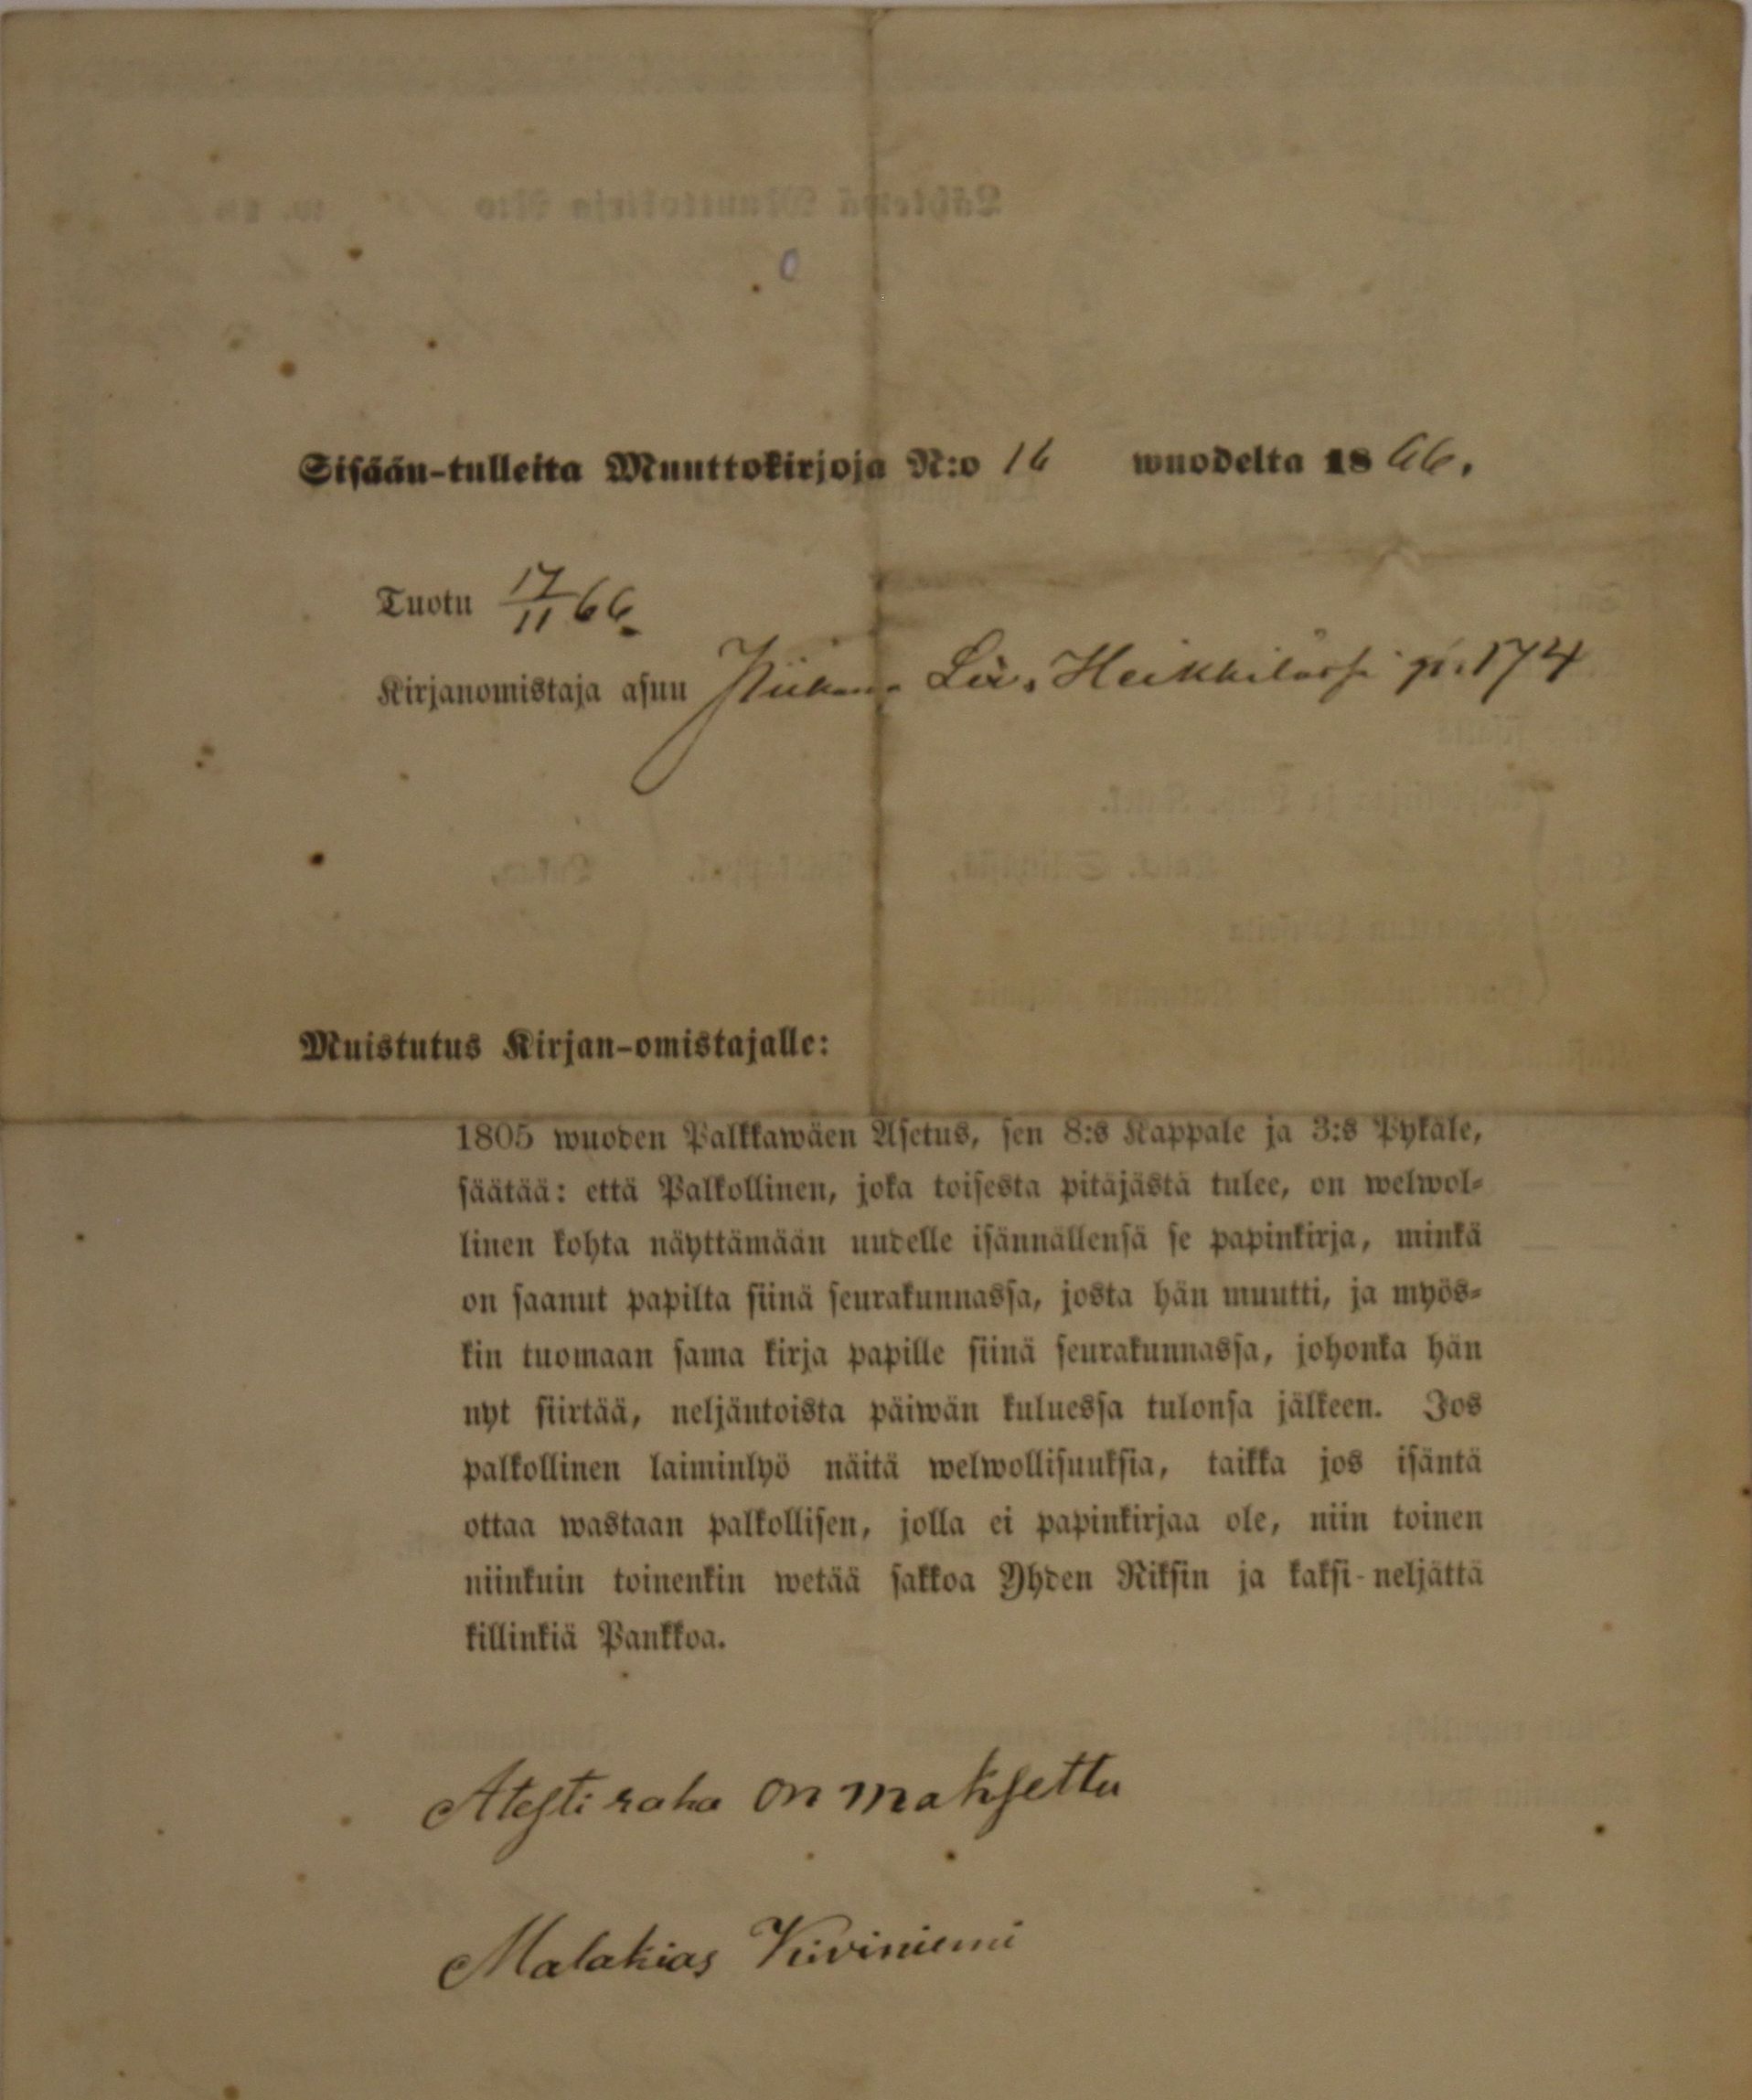 Sisään-tulleita Muuttokirjoja N:o 16 wuodelta 1866.
Tuotu 17/11 66.
Kirjanomistaja asuu Heikkilässä 174
Muistutus Kirjan-omistajalle:
1805 wuoden Palkkawäen Asetus, sen 8:s Kappale ja 3:s Pykäle,
säätää: että Palkollinen, joka toisesta pitäjästä tulee, on welwol-
linen kohta näyttämään uudelle isännällensä se papinkirja, minkä
on saanut papilta siinä seurakunnassa, josta hän muutti, ja myös-
kin tuomaan sama kirja papille siinä seurakunnassa, johonka hän
nyt siirtää, neljäntoista päiwän kuluessa tulonsa jälkeen. Jos
palkollinen laiminlyö näitä welwollisuuksia, taikka jos isäntä
ottaa wastaan palkollisen, jolla ei papinkirjaa ole, niin toinen
niinkuin toinenkin wetää sakkoa Yhden Riksin ja kaksi-neljättä
killinkiä Pankkoa.
Atesti raha on maksettu
Malakias Kiviniemi